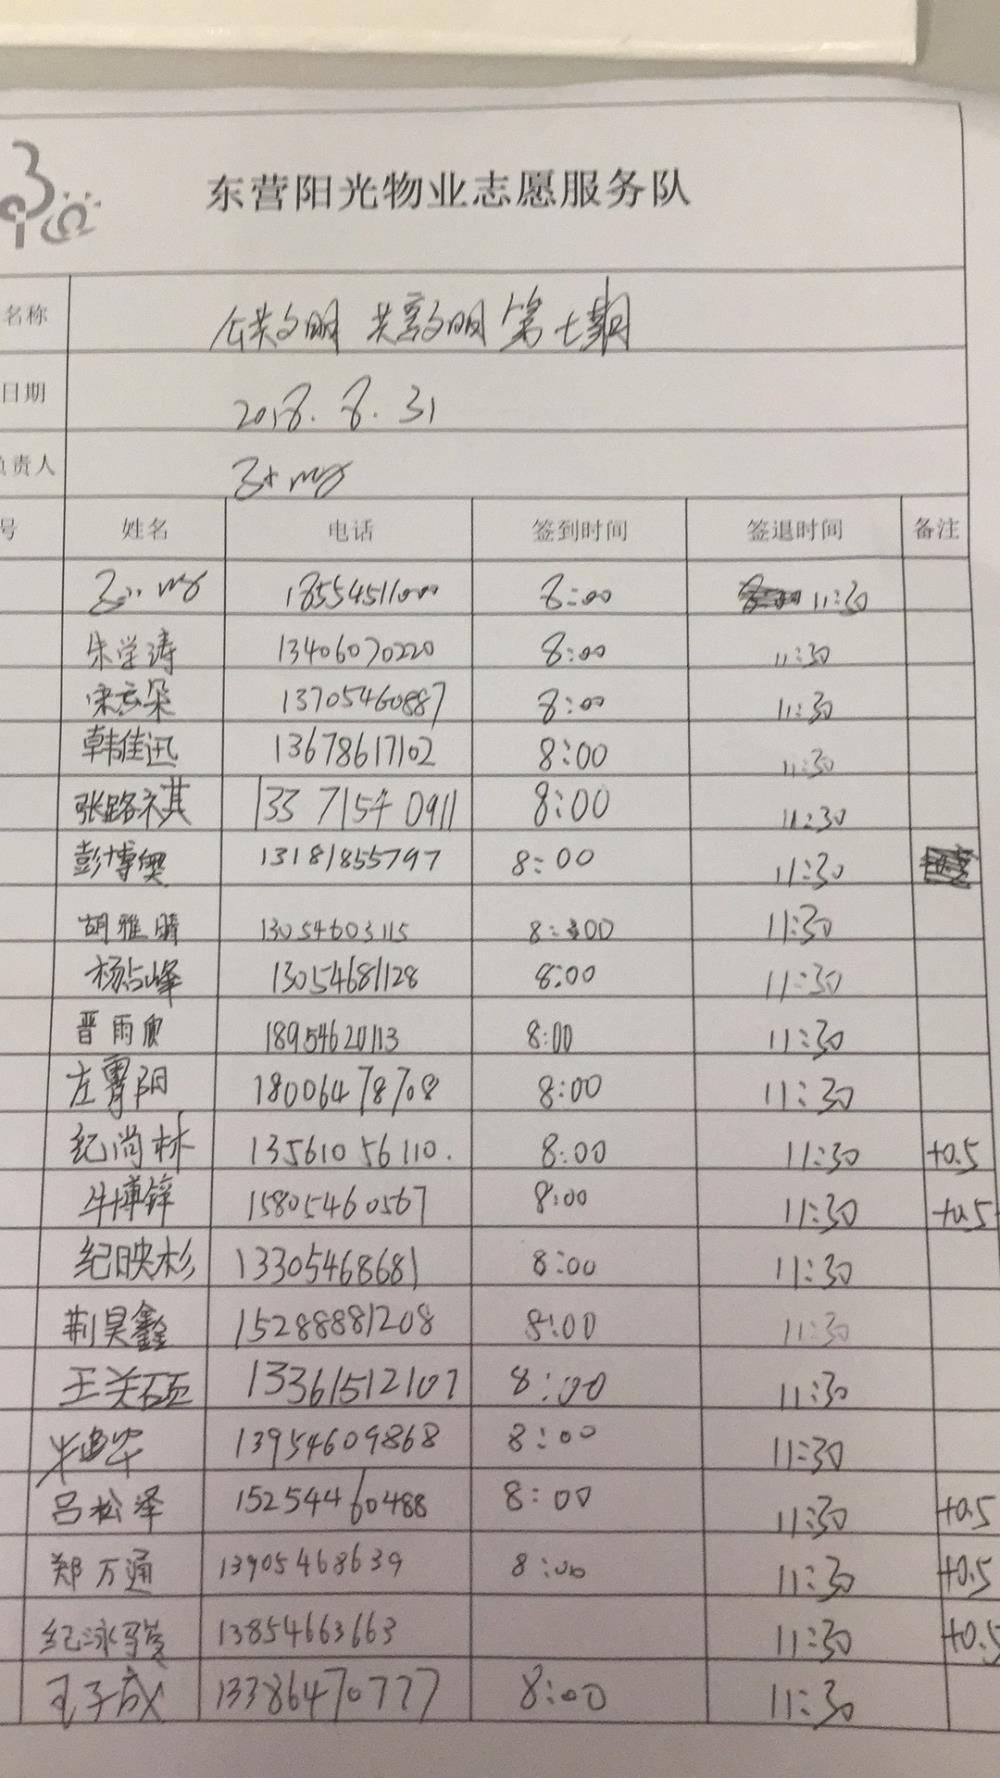 东营阳光物业志愿服务队
名称 共文明 共享文明 第七期
日期 2018.8.31
负责人
号 姓名 电话 签到时间 签退时间 备注
18554511000 8:00 11:30
朱学涛 13406070220 8:00 11:30
宋云朵 13705460887 8:00 11:30
韩佳迅 13678617102 8:00 11:30
张路祺 133 7154 0911 8:00 11:30
彭博奥 13181855797 8:00 11:30
胡雅晴 13054603115 8:00 11:30
杨占峰 13054681128 8:00 11:30
晋雨欣 18954620113 8:00 11:30
左霄阳 18006478708 8:00 11:30
纪尚林 13561056110. 8:00 11:30 +0.5
牛博锌 15805460567 8:00 11:30 +0.5
纪映杉 13305468681 8:00 11:30
荆昊鑫 15288881208 8:00 11:30
王关硕 13361512107 8:00 11:30
13954609868 8:00 11:30
吕松泽 15254460488 8:00 11:30 +0.5
郑万通 13905468639 8:00 11:30 +0.5
纪泳骏 13854663663 11:30 +0.5
王子成 13386470777 8:00 11:30